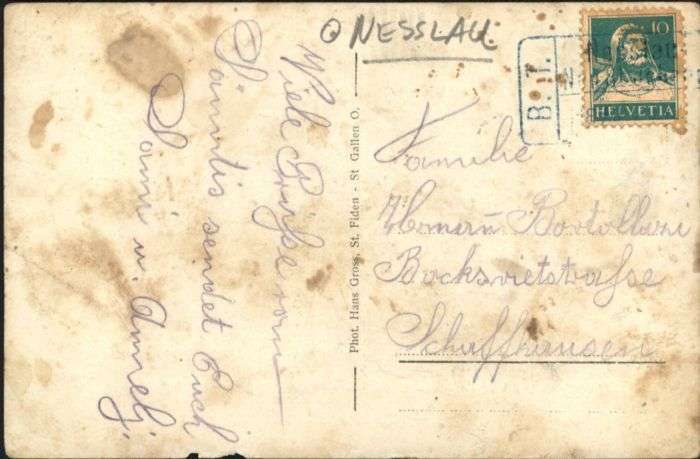 O NESSLAU
10
HELVETIA
B. T.
Viele Grüsse vom
Säntis sendet Euch
Sami u. Anneli
Phot. Hans Gross, St. Fiden - St Gallen O.
Familie
Bortollazi
Bocksrietstrasse
Schaffhausen